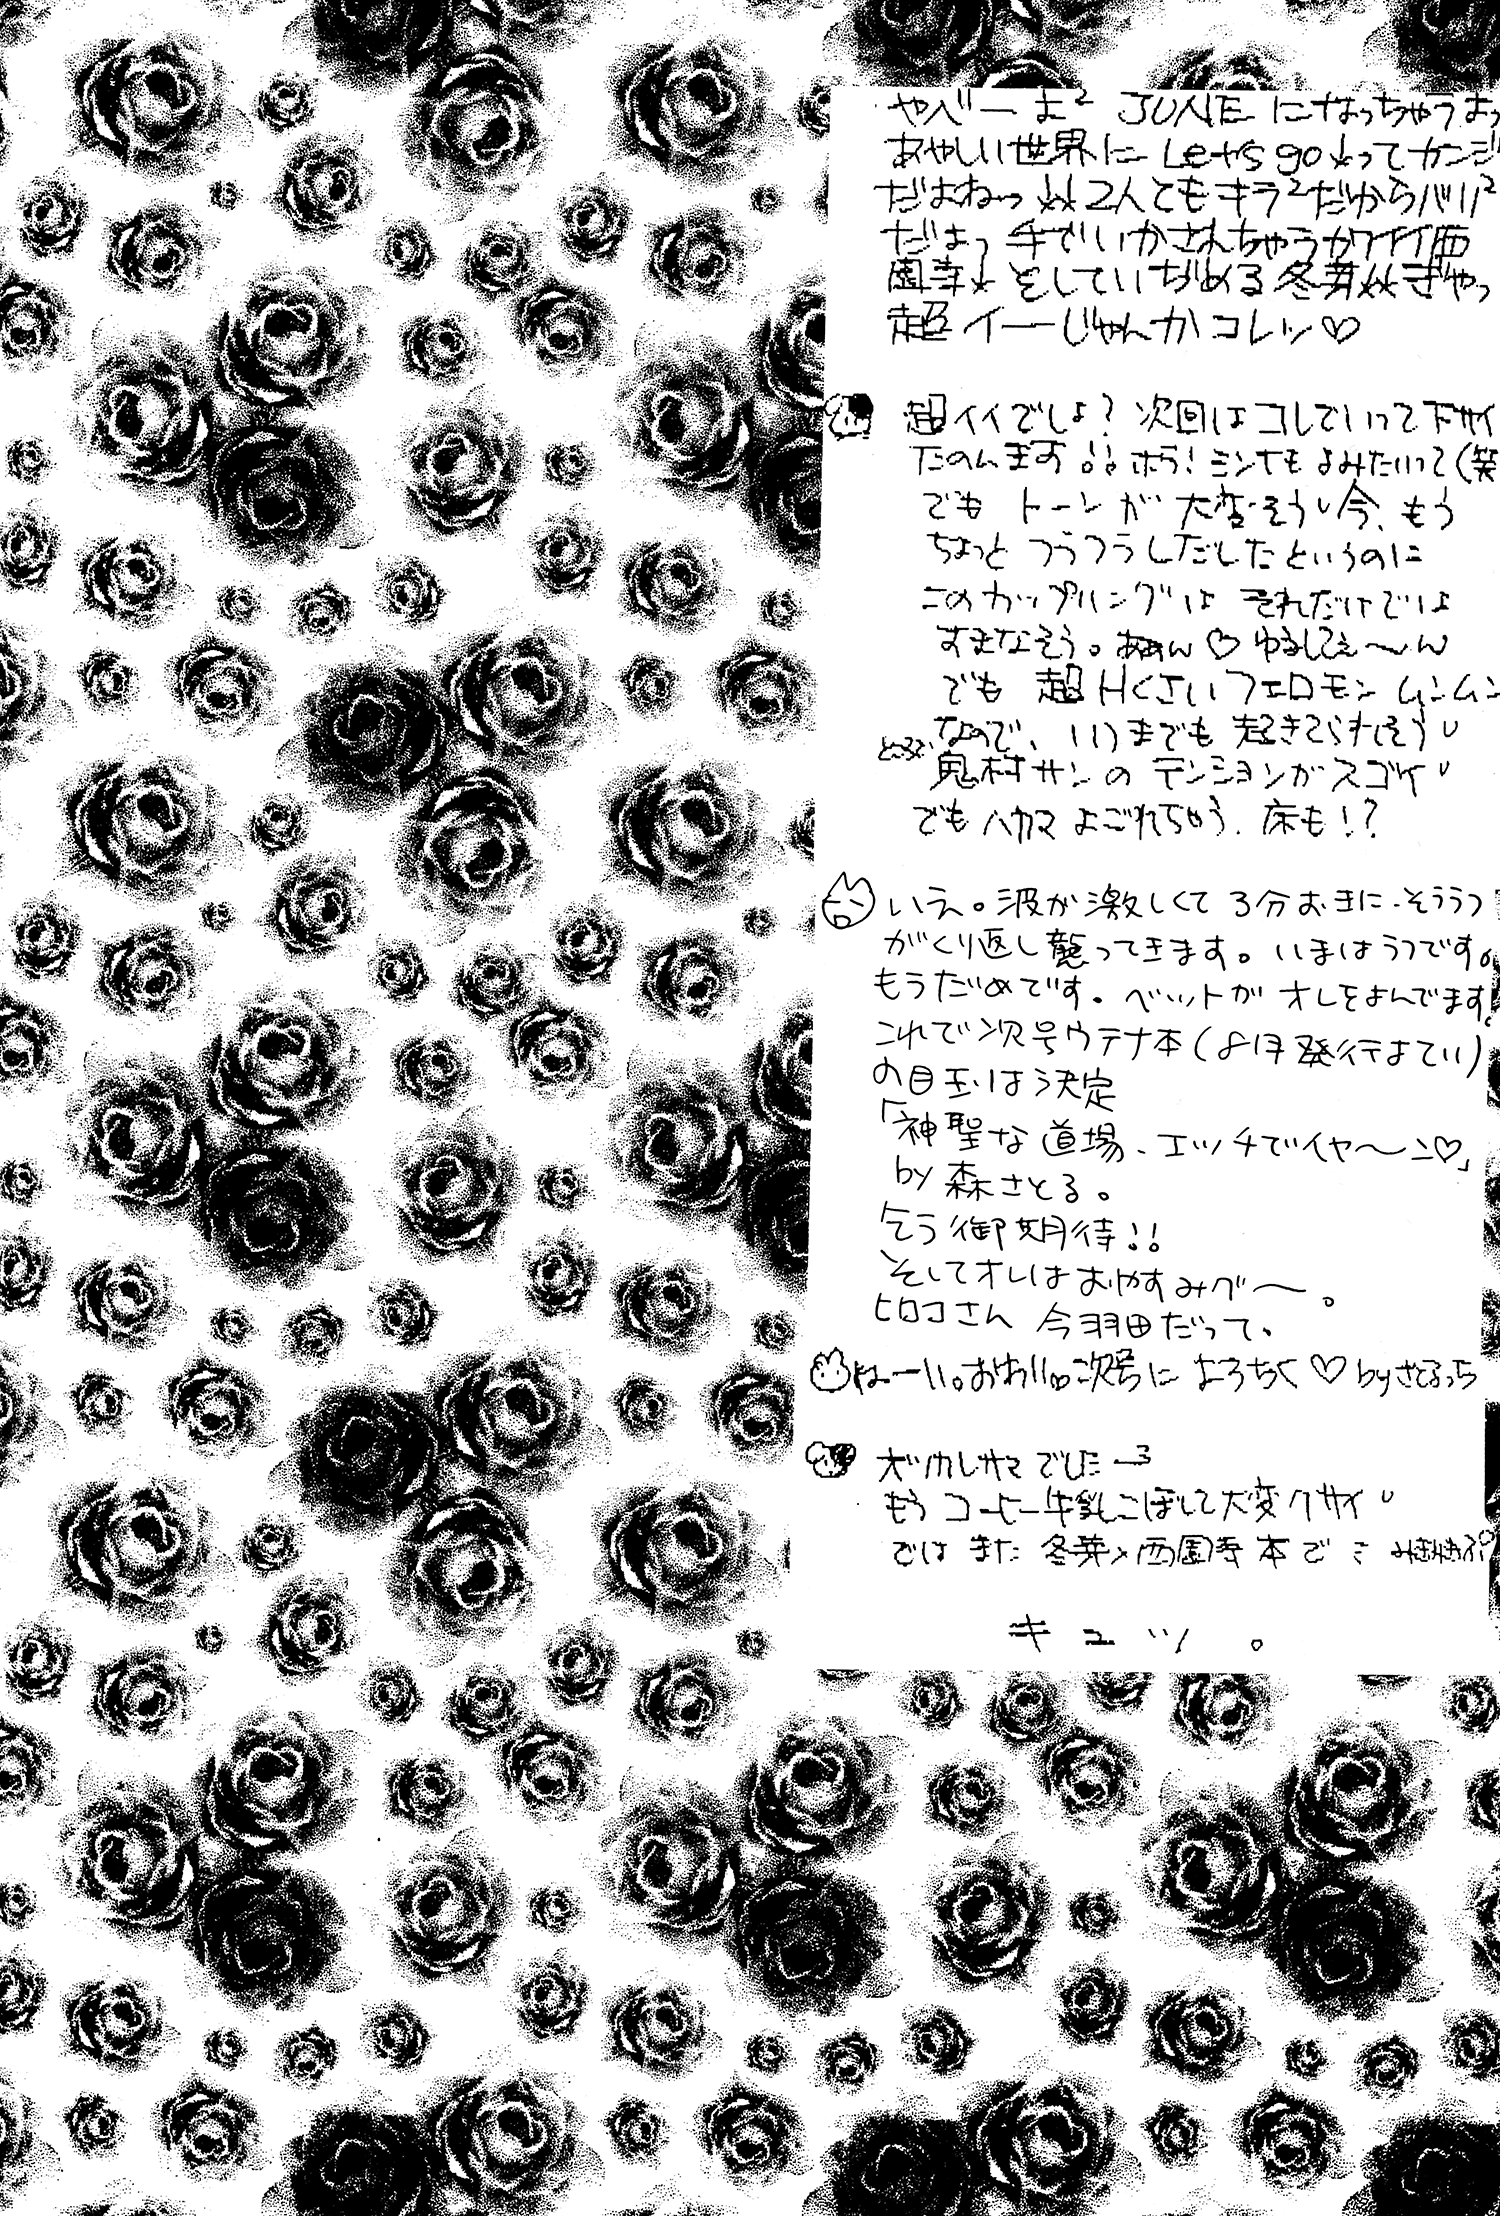 やべーよ² JUNEになっちゃうよっ
あやしい世界に Let's go☆ってカンジ
だよねっ☆☆2人ともキラ²だからバリ²
だよっ 手でいかされちゃうカワイイ西
園寺☆ そしていぢめる冬芽☆☆ぎゃっ
超イーじゃんかコレッ♡
超イイでしょ? 次回はコレでいって下サイ
たのんます!! ホラ! ミンナもよみたいって(笑
でも トーンが 大変そう 今、もう
ちょっと フラフラしだしたというのに
このカップリングは それだけでは
すまなそう。あぁん♡ ゆるしてぇ〜ん
でも 超Hくさいフェロモン ムンムン
なので、いつまでも 起きてられそう
ところで 鬼村サンの テンションがスゴイ
でもハカマ よごれちゃう、床も!?
いえ。波が激しくて 3分おきに、そううつ
がくり返し襲ってきます。いまはうつです。
もうだめです。ベットが オレをよんでます。
これで次号ウテナ本(8月発行よてい)
の目玉は決定
「神聖な道場、エッチでイヤ〜ン♡」
by 森さとる。
乞う御期待!!
そしてオレはおやすみグ〜。
ヒロコさん 今羽田だって。
はーい。おわり。次号に よろちく♡ byさとるっち
オツカレサマでした―3
もう コーヒー牛乳こぼして大変クサイ
ではまた 冬芽×西園寺本でさ
キュッ。